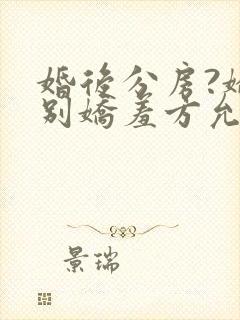 婚後分房?
別嬌羞方允
景瑞